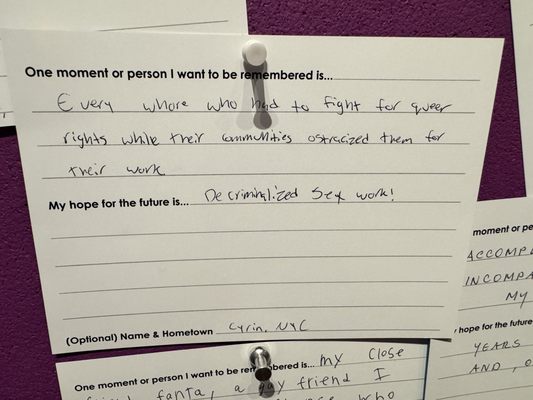 One moment or person I want to be remembered is...
Every whore who had to fight for queer
rights while their communities ostracized them for
their work
My hope for the future is... Decriminalized Sex work!
(Optional) Name & Hometown Cyrin, NYC
moment or pe
ACCOMP
INCOMPA
MY
hope for the future
YEARS
AND, O
One moment or person I want to be remembered is... my close
friend fanta, a gay friend I
who